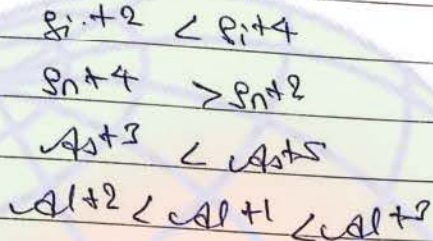 Si+2 < Si+4
Sn+4 > Sn+2
As+3 < As+5
Al+2 < Al+1 < Al+3